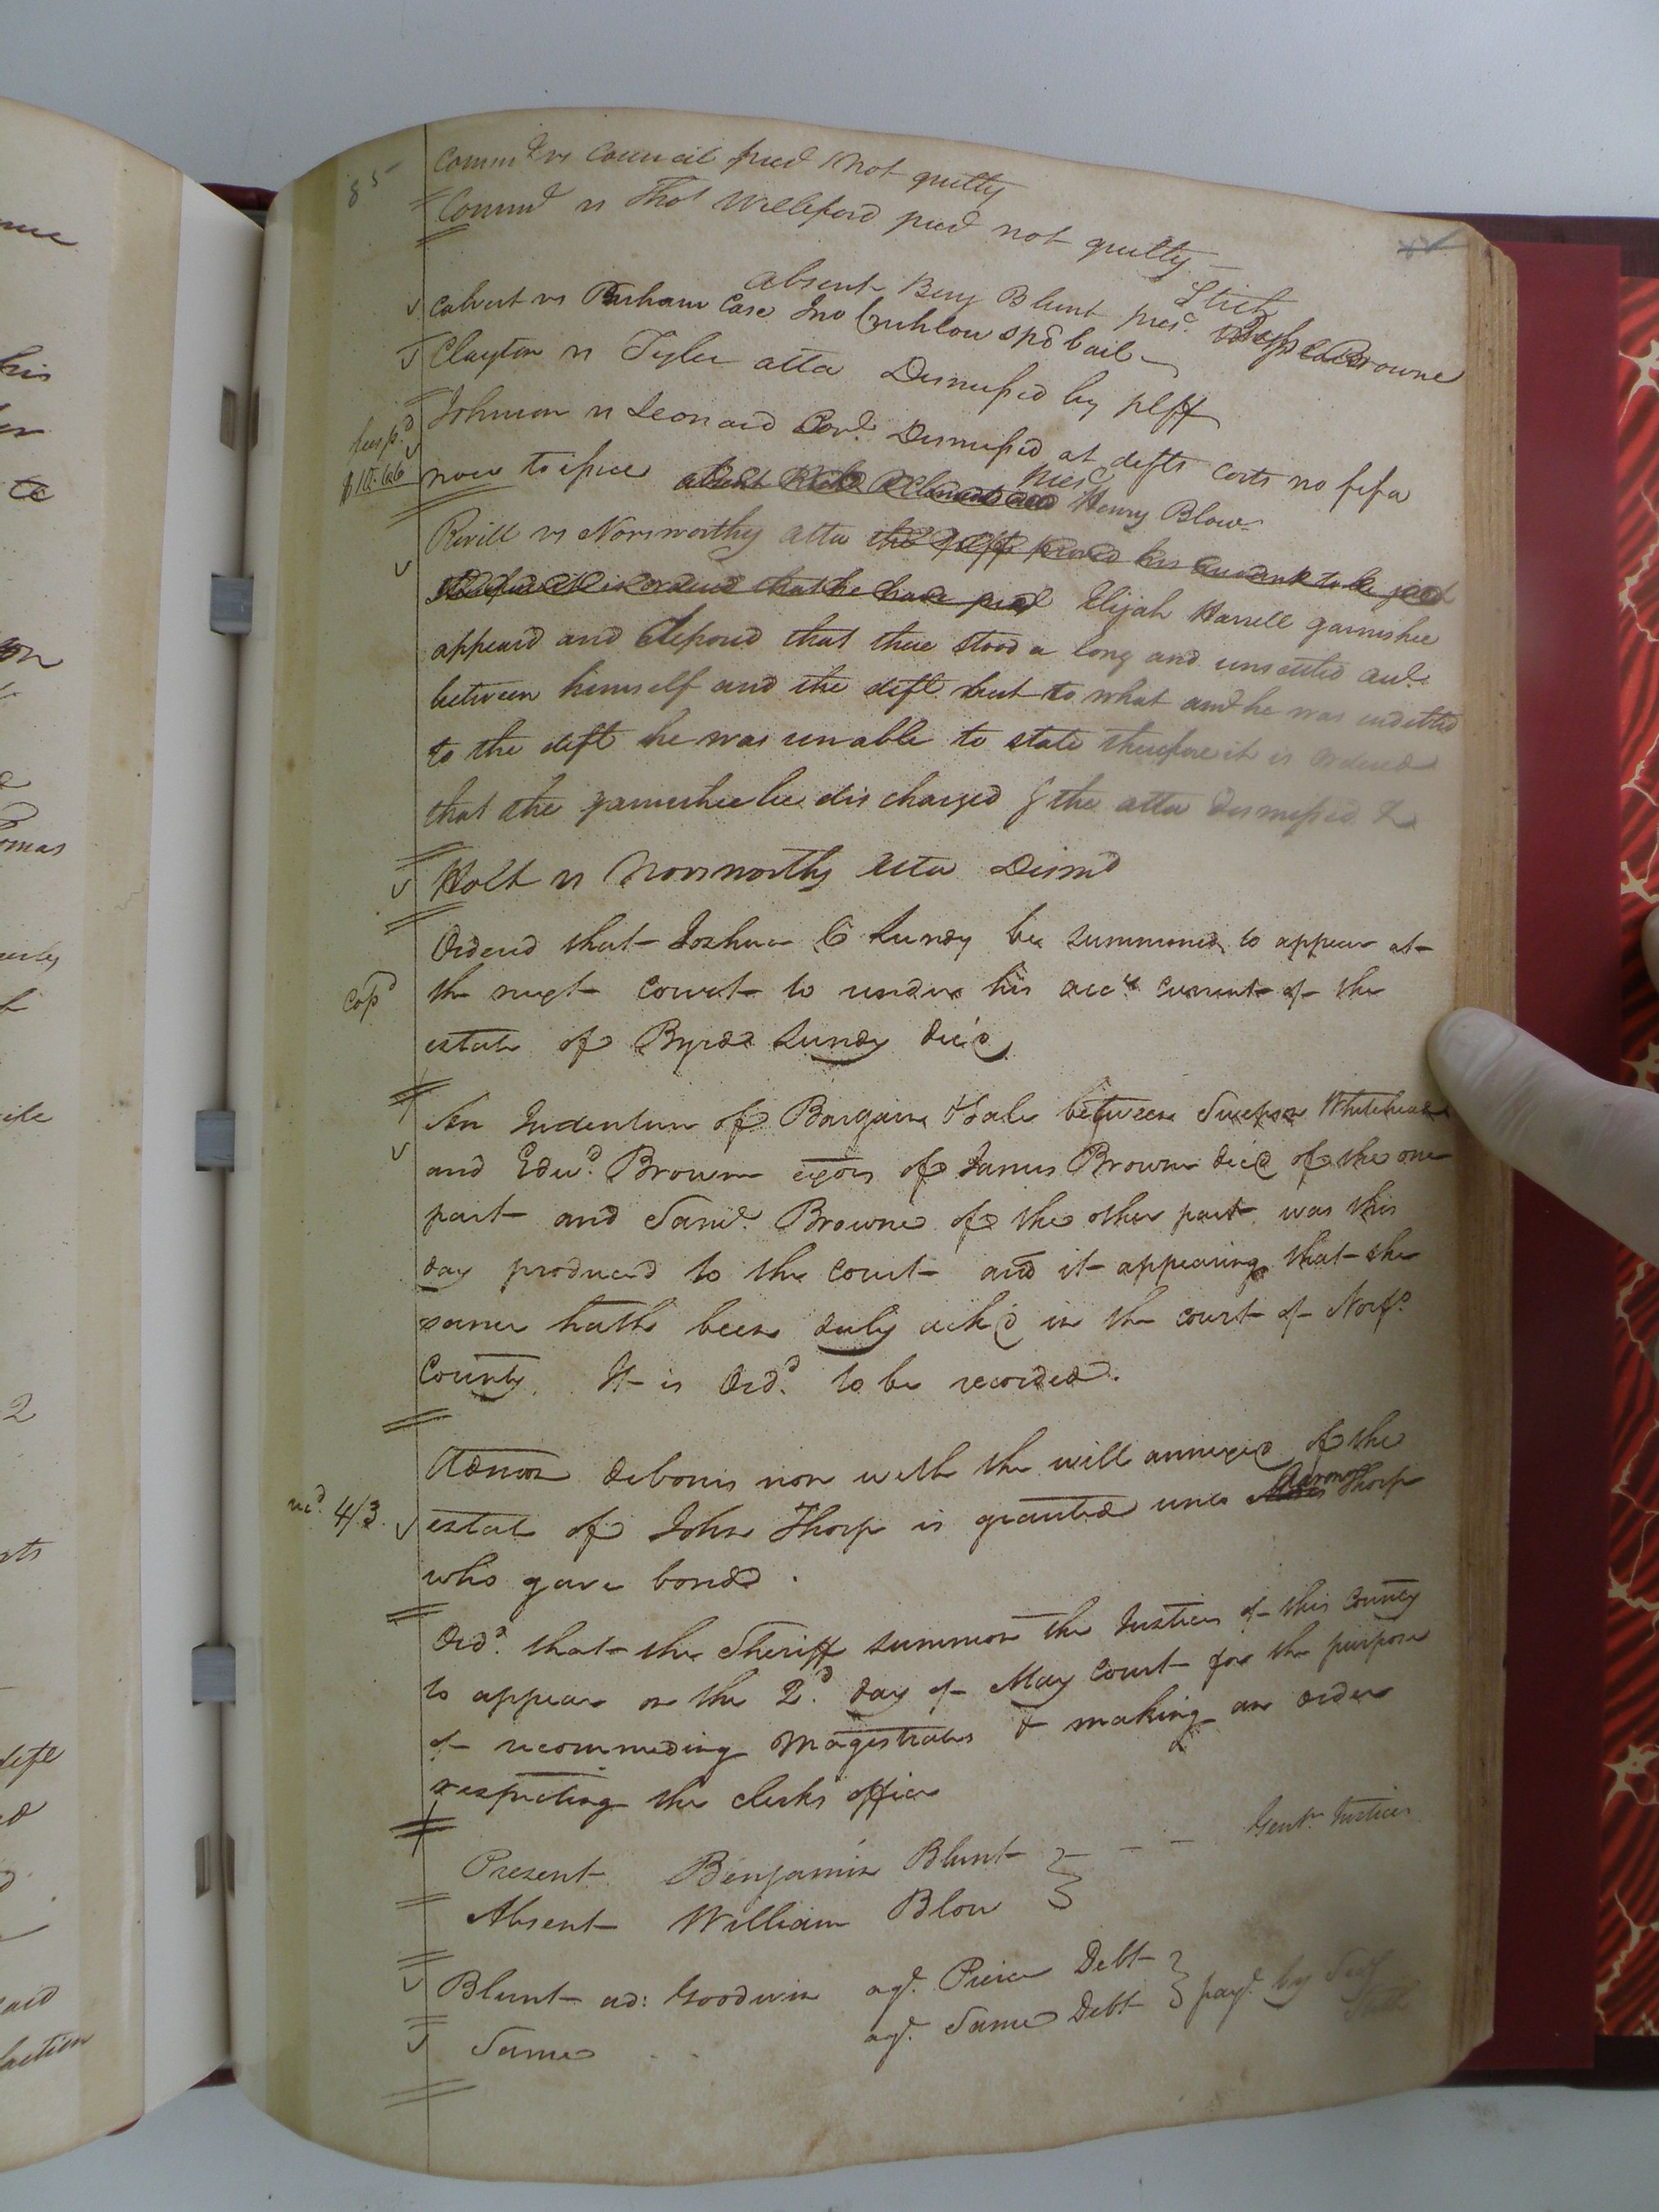 85
Commd vs Council pled not guilty
Commd vs Thos Willeford pled not guilty
Absent Benj Blunt pres.
Calvert vs Parham Case Jno spd bail
Clayton vs Tyler atta Dismissed by plff
Johnson vs Leonard Dismissed at defts costs no fifa
now to issue pres Henry Blow
Revill vs Norsworthy atta the plff proved his
ordered that he have Elijah Harrell garnishee
appeard and deposed that there stood a long and unsettled
between himself and the deft but to what amt he was indebted
to the deft he was unable to state therefore it is ordered
that the garnishee be discharged & the atta dismissed &
Holt vs Norsworthy atta Dismd
Ordered that Joshua C Lundy be summoned to appear at
Copd the next court to render his acct. current of the
estate of Byrd Lundy dec'd
An Indenture of Bargain & Sale between Swepson Whitehead
and Edwd. Brown exors of James Brown dec'd of the one
part and Saml. Browne of the other part was this
day produced to the court and it appearing that the
same hath been duly ack'd in the court of Norfo.
County. It is Ord. to be recorded.
Admon debonis non with the will annexed of the
Aaron
4/3. estate of John Thorp is granted unto Moses Thorp
who gave bond.
Ord. that the Sheriff summon the Justices of this County
to appear on the 2.d day of May Court for the purpose
of recommeding Magistrates & making an order
respecting the clerks office
Present Benjamin Blunt } - - Gent. Justices
Absent William Blow
Blunt ad: Goodwin agt. Debt } payt. by
Same . . agt. Same Debt